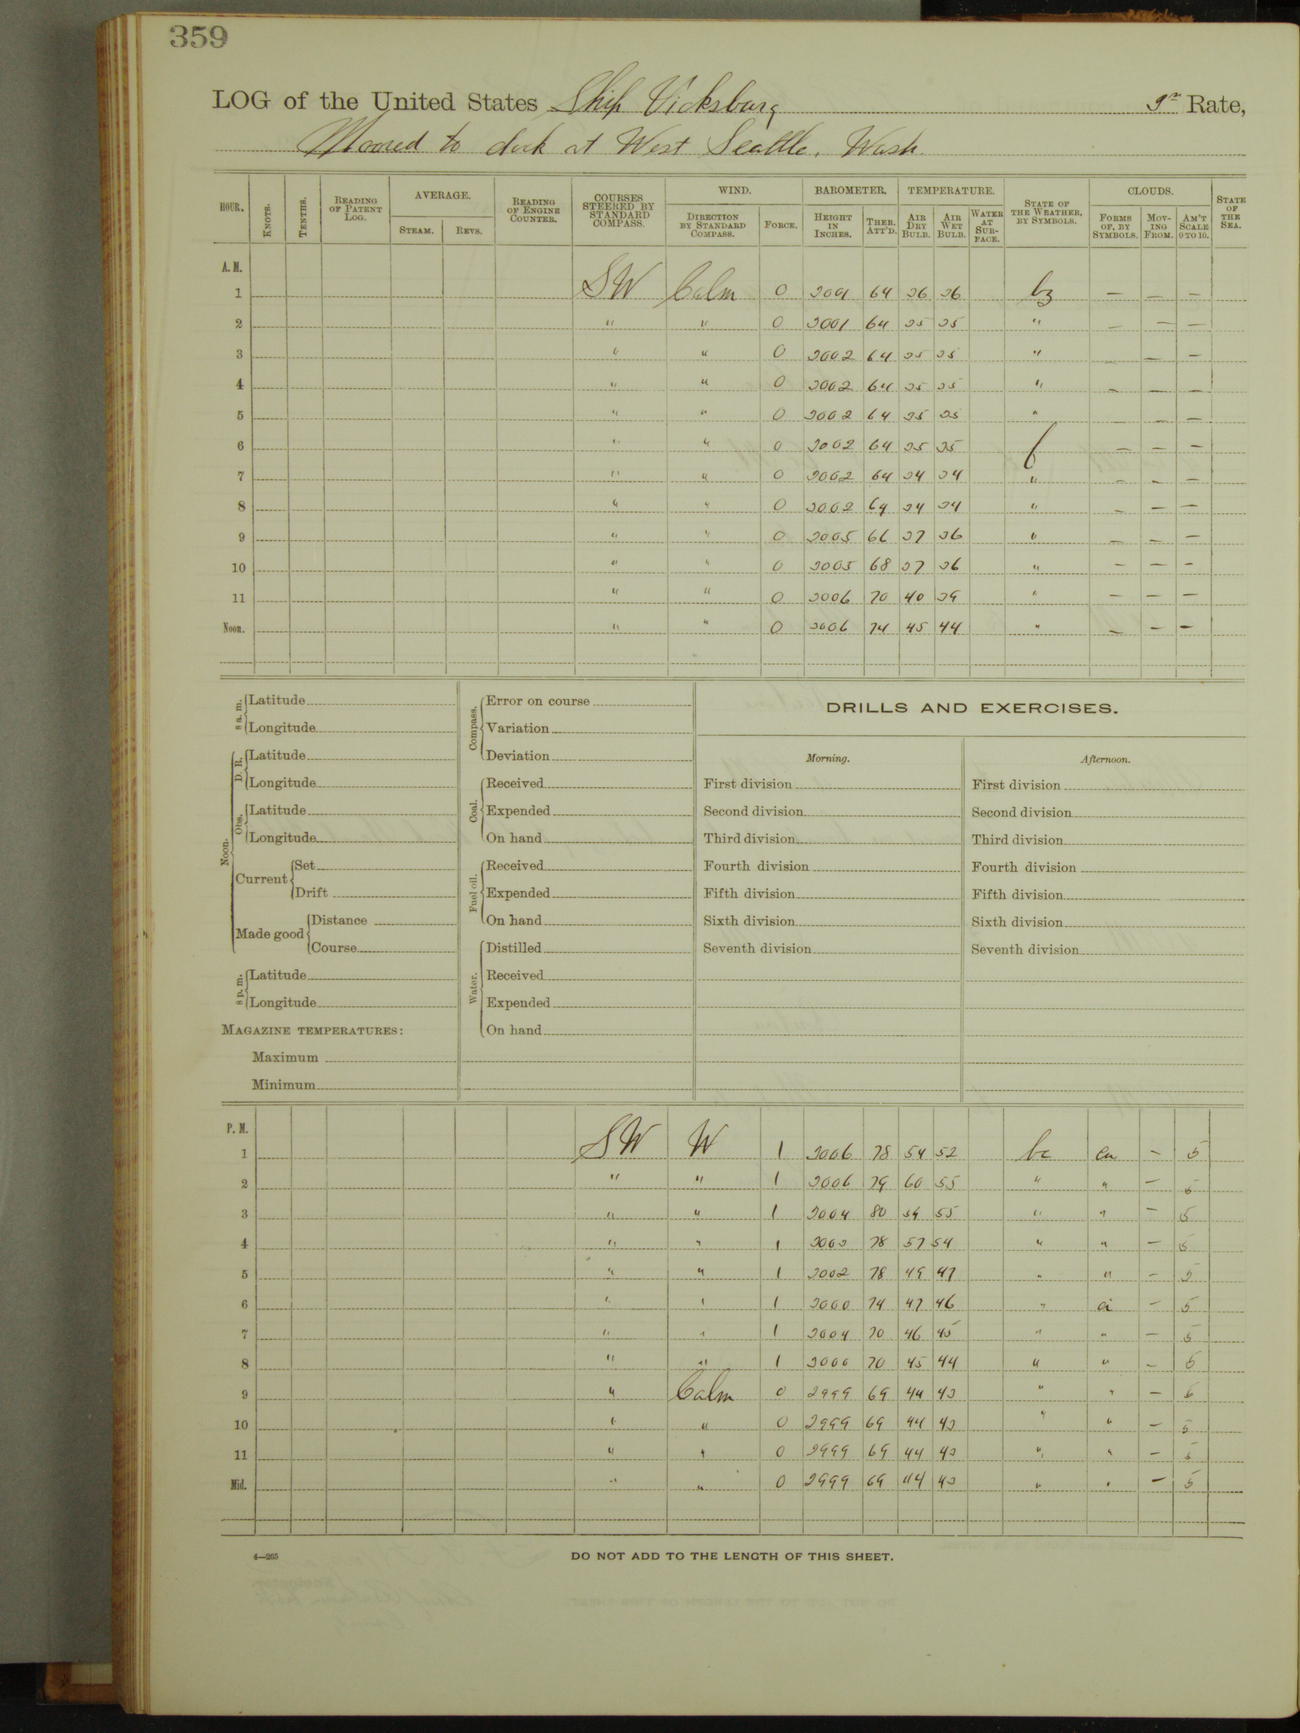 359
LOG of the United States Ship Vicksburg 3rd Rate,
Moored to dock at West Seattle, Wash.
HOUR. KNOTS. TENTHS. READING OF PATENT LOG. AVERAGE. STEAM. REVS. READING OF ENGINE COUNTER. COURSES STEERED BY STANDARD COMPASS. WIND. DIRECTION BY STANDARD COMPASS. FORCE. BAROMETER. HEIGHT IN INCHES. THER. ATT'D. TEMPERATURE. AIR DRY BULB. AIR WET BULB. WATER AT SURFACE. STATE OF THE WEATHER, BY SYMBOLS. CLOUDS. FORMS OF, BY SYMBOLS. MOVING FROM. AM'T SCALE 0 TO 10. STATE OF THE SEA.
A. M.
1 SW Calm 0 3001 64 36 36 bz — — —
2 " " 0 3001 64 35 35 " — — —
3 " " 0 3002 64 35 35 " — — —
4 " " 0 3002 64 35 35 " — — —
5 " " 0 3002 64 35 35 " — — —
6 " " 0 3002 64 35 35 f — — —
7 " " 0 3002 64 34 34 " — — —
8 " " 0 3002 64 34 34 " — — —
9 " " 0 3005 66 37 36 " — — —
10 " " 0 3005 68 37 36 " — — —
11 " " 0 3006 70 40 39 " — — —
Noon. " " 0 3006 74 45 44 " — — —
8 a. m. Latitude
Longitude
Noon. D. R. Latitude
Longitude
Obs. Latitude
Longitude
Current Set
Drift
Made good Distance
Course
8 p. m. Latitude
Longitude
MAGAZINE TEMPERATURES:
Maximum
Minimum
Compass. Error on course
Variation
Deviation
Coal. Received
Expended
On hand
Fuel oil. Received
Expended
On hand
Water. Distilled
Received
Expended
On hand
DRILLS AND EXERCISES.
Morning.
First division
Second division
Third division
Fourth division
Fifth division
Sixth division
Seventh division
Afternoon.
First division
Second division
Third division
Fourth division
Fifth division
Sixth division
Seventh division
P. M.
1 SW W 1 3006 78 54 52 bc cu — 5
2 " " 1 3006 79 60 55 " " — 5
3 " " 1 3004 80 59 55 " " — 5
4 " " 1 3003 78 57 54 " " — 5
5 " " 1 3002 78 49 47 " " — 5
6 " " 1 3000 74 47 46 " ci — 5
7 " " 1 3004 70 46 45 " " — 5
8 " " 1 3000 70 45 44 " " — 5
9 " Calm 0 2999 69 44 43 " " — 5
10 " " 0 2999 69 44 43 " " — 5
11 " " 0 2999 69 44 43 " " — 5
Mid. " " 0 2999 69 44 43 " " — 5
6—265
DO NOT ADD TO THE LENGTH OF THIS SHEET.